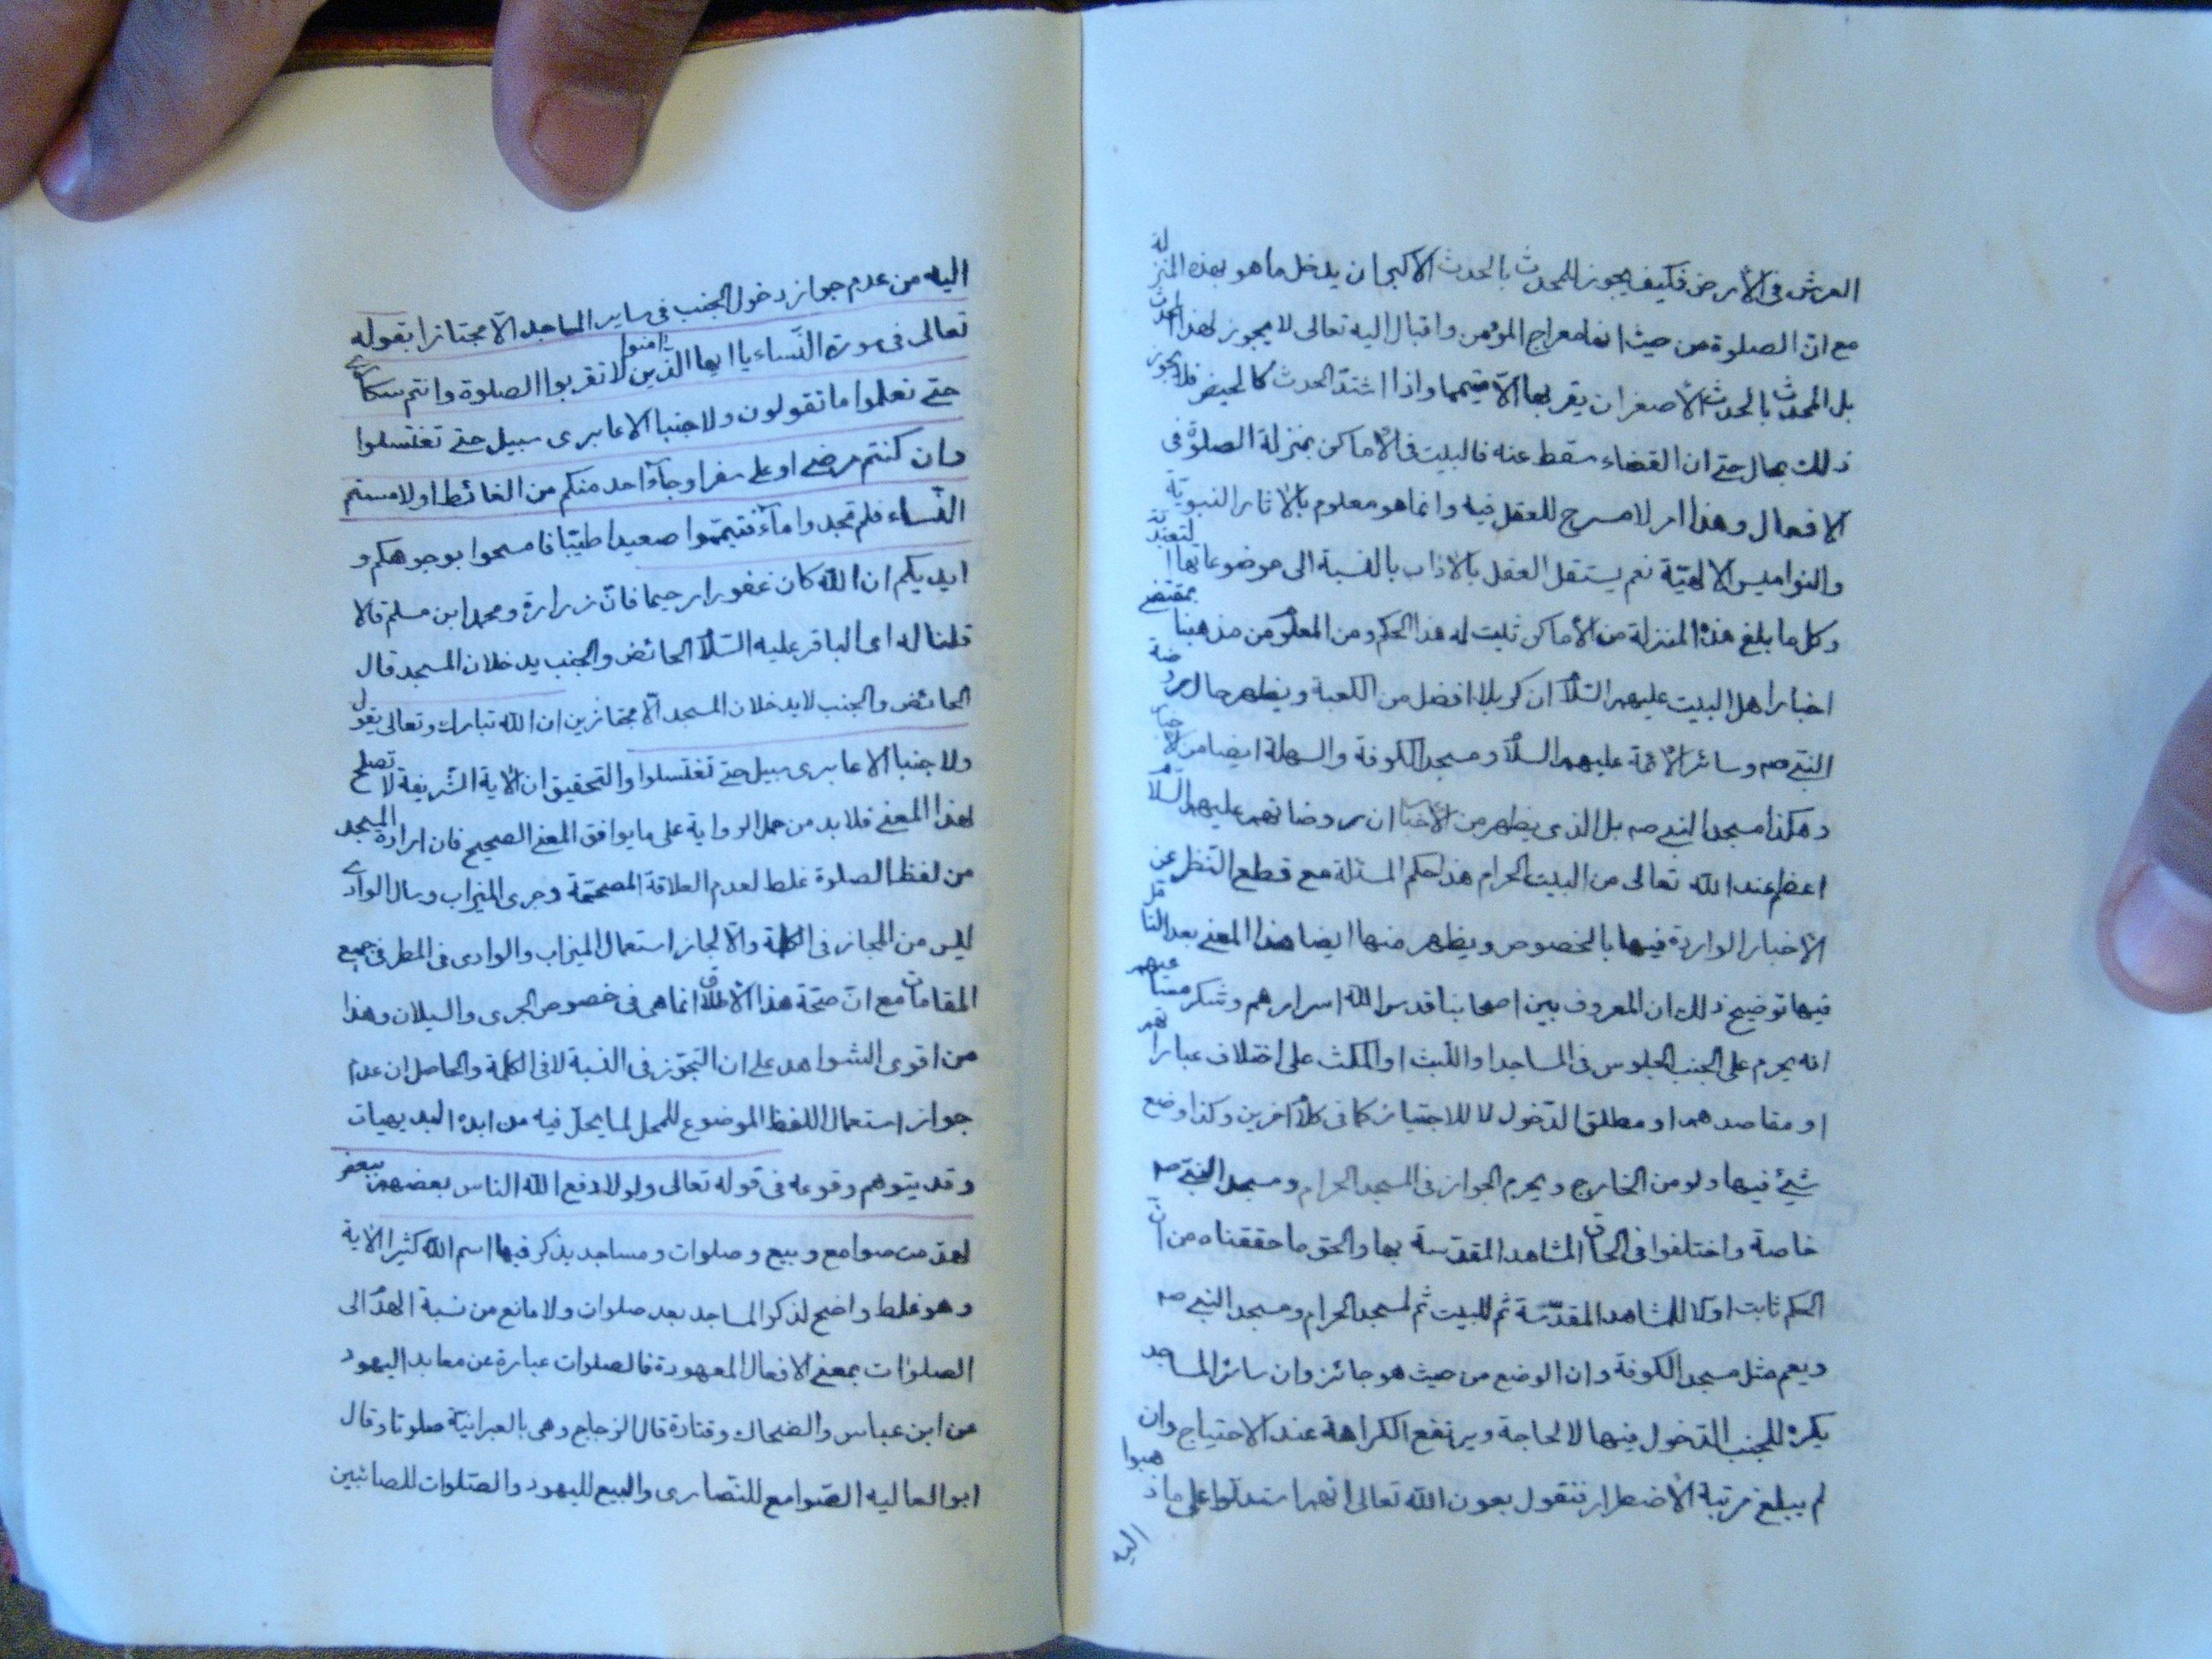 العرش فى الأرض فكيف يجوز للمحدث بالحدث الاكبر ان يدخل ما هو بهذه المنزلة
مع انّ الصلوة من حيث انها معراج المؤمن واقبال اليه تعالى لا يجوز لهذا المحدث
بل المحدث بالحدث الأصغر ان يقربها الّا متيمما واذا اشتدّ الحدث كالحيض فلا يجوز
ذلك بحال حتى ان القضاء سقط عنه فالبيت فى الأماكن بمنزلة الصلوة فى
الافعال وهذا امر لا مسرح للعقل فيه وانما هو معلوم بالاثار النبويّة
والنواميس الالهيّة نعم يستقل العقل بالاذاب بالنسبة الى موضوعاتها التعبديّة
وكل ما بلغ هذه المنزلة من الأماكن ثبت له هذا الحكم ومن المعلوم من مذهبنا بمقتضى
اخبار اهل البيت عليهم السّلام ان كربلا افضل من الكعبة ويظهر حال روضة
النبى صه وسائر الأئمة عليهم السلام ومسجد الكوفة والسهلة ايضا من الأخبار
وهكذا مسجد النبى صه بل الذى يظهر من الأخبار ان روضاتهم عليهم السّلام
اعظم عند الله تعالى من البيت الحرام هذا حكم المسئلة مع قطع النّظر عن
الأخبار الواردة فيها بالخصوص ويظهر منها ايضا هذا المعنى بعد التامّل
فيها توضيح ذلك ان المعروف بين اصحابنا قدس الله اسرارهم وشكر مساعيهم
انه يحرم على الجنب الجلوس فى المساجد او اللّبث او المكث على اختلاف عباراتهم
او مقاصدهم او مطلق الدّخول لا للاجتياز كما فى كلام آخرين وكذا وضع
شيئ فيها ولو من الخارج ويحرم الجواز فى المسجد الحرام ومسجد النبى صه
خاصة واختلفوا فى الحاق المشاهد المقدّسة بها والحق ما حققناه من انّ
الحكم ثابت اولا للمشاهد المقدّسة ثم للبيت ثم لمسجد الحرام ومسجد النبى صه
ويعم مثل مسجد الكوفة وان الوضع من حيث هو جائز وان سائر المساجد
يكره للجنب الدّخول فيها لا لحاجة ويرتفع الكراهة عند الاحتياج وان
لم يبلغ مرتبة الأضطرار فنقول بعون الله تعالى انهم استدلّوا على ما ذهبوا
اليه
اليه من عدم جواز دخول الجنب فى ساير المساجد الّا مجتازا بقوله
تعالى فى سورة النّساء يا ايها الذّين امنوا لا تقربوا الصلوة وانتم سكارى
حتى تعلموا ما تقولون ولا جنبا الا عابرى سبيل حتى تغتسلوا
وان كنتم مرضى او على سفر او جآء احد منكم من الغائط او لامستم
النّساء فلم تجدوا مآء فتيمّموا صعيدا طيّبا فامسحوا بوجوهكم و
ايديكم ان الله كان غفورا رحيما فانّ زرارة ومحمد ابن مسلم قالا
قلنا له اى الباقر عليه السّلام الحائض والجنب يدخلان المسجد قال
الحائض والجنب لا يدخلان المسجد الّا مجتازين ان الله تبارك وتعالى يقول
ولا جنبا الا عابرى سبيل حتى تغتسلوا والتحقيق ان الاية الشّريفة لا تصلح
لهذا المعنى فلا بد من حمل الرواية على ما يوافق المعنى الصحيح فان ارادة المسجد
من لفظ الصلوة غلط لعدم العلاقة المصححّة وجرى الميزاب وسال الوادى
ليس من المجاز فى الكلمة والّا لجاز استعمال الميزاب والوادى فى المطر فى جميع
المقامات مع انّ صحّة هذا الأطلاق انما هى فى خصوص الجرى والسيلان وهذا
من اقوى الشواهد على ان التّجوّز فى النسبة لا فى الكلمة والحاصل ان عدم
جواز استعمال اللفظ الموضوع للمحل لما يحلّ فيه من ابده البديهيات
وقد يتوهم وقوعه فى قوله تعالى ولولا دفع الله الناس بعضهم ببعض
لهدّمت صوامع وبيع وصلوات ومساجد يذكر فيها اسم الله كثيرا الاية
وهو غلط واضح لذكر المساجد بعد صلوات ولا مانع من نسبة الهدم الى
الصلوات بمعنى الافعال المعهودة فالصلوات عبارة عن معابد اليهود
عن ابن عباس والضحاك وقتادة قال الزجاج وهى بالعبرانيّة صلوتا وقال
ابو العاليه الصّوامع للنّصارى والبيع لليهود والصّلوات للصائبين